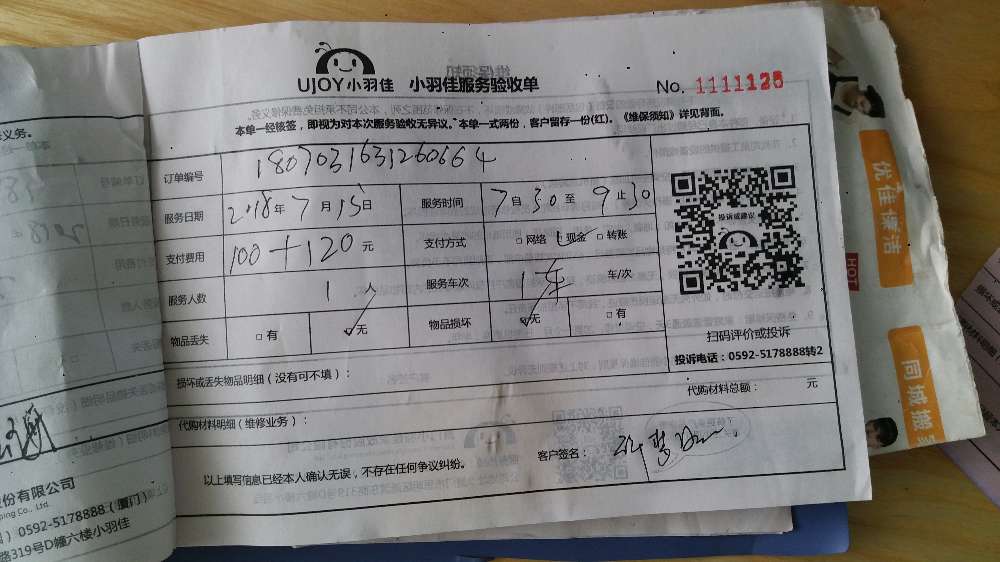 UJOY小羽佳 小羽佳服务验收单
No. 1111126
本单一经核签，即视为对本次服务验收无异议。本单一式两份，客户留存一份(红)。《维保须知》详见背面。
订单编号 1807031631260664
服务日期 2018年7月15日 服务时间 7自30至9止30
支付费用 100+120元 支付方式 □网络 现金 □转账
服务人数 1人 服务车次 1车 车/次
物品丢失 □有 ☑无 物品损坏 ☑无 □有
损坏或丢失物品明细（没有可不填）：
代购材料明细（维修业务）：
代购材料总额： 元
以上填写信息已经本人确认无误，不存在任何争议纠纷。
客户签名：
投诉或建议
扫码评价或投诉
投诉电话：0592-5178888转2
义务。
份有限公司
ping Co., Ltd.
0592-5178888（厦门）
路319号D幢六楼小羽佳
优佳保洁
HOT
同城搬